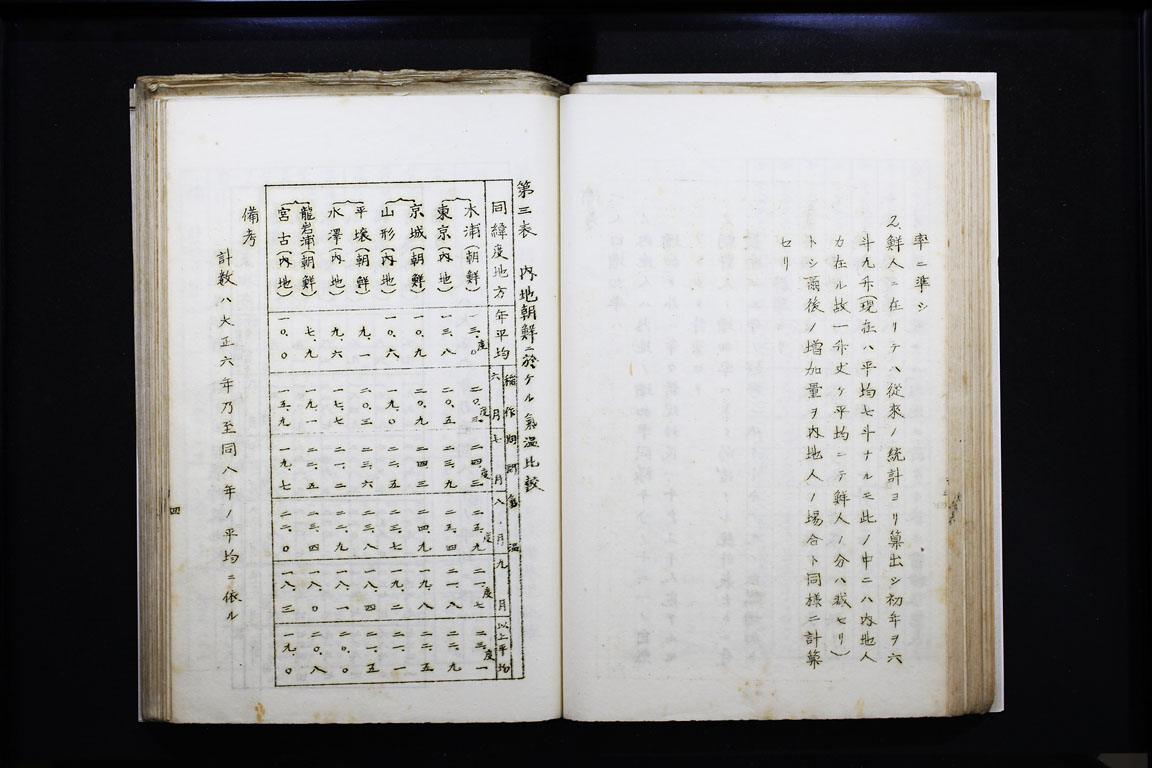 率ニ準シ
2.鮮人ニ在リテハ從來ノ統計ヨリ算出シ初年ヲ六
斗九升(現在ハ平均七斗ナルモ此ノ中ニハ内地人
カ在ル故一升丈ケ平均ニテ鮮人ノ分ハ減セリ)
トシ爾後ノ増加量ヲ内地人ノ場合ト同様ニ計算
セリ
第三表 内地朝鮮ニ於ケル氣温比較
同緯度地方 年平均 稲作期間氣温 六月 七月 八月 九月 以上平均
木浦(朝鮮) 一三.〇度 二〇.三度 二四.三度 二五.九度 二一.七度 二三.一度
東京(内地) 一三.八 二〇.五 二三.九 二五.四 二一.八 二二.九
京城(朝鮮) 一〇.九 二〇.九 二四.三 二四.九 一九.八 二二.五
山形(内地) 一〇.六 一九.〇 二二.五 二三.七 一九.二 二一.一
平壌(朝鮮) 九.一 二〇.三 二三.六 二三.八 一八.四 二一.五
水澤(内地) 九.六 一七.七 二一.二 二二.九 一八.一 二〇.〇
龍岩浦(朝鮮) 七.九 一九.一 二二.五 二三.四 一八.〇 二〇.八
宮古(内地) 一〇.〇 一五.九 一九.七 二二.〇 一八.三 一九.〇
備考
計数ハ大正六年乃至同八年ノ平均ニ依ル
四